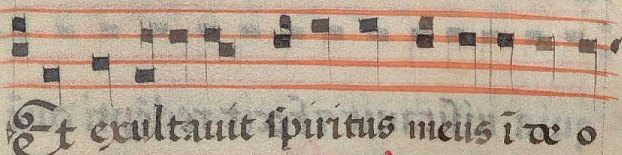 Et exultauit spiritus meus ī de o